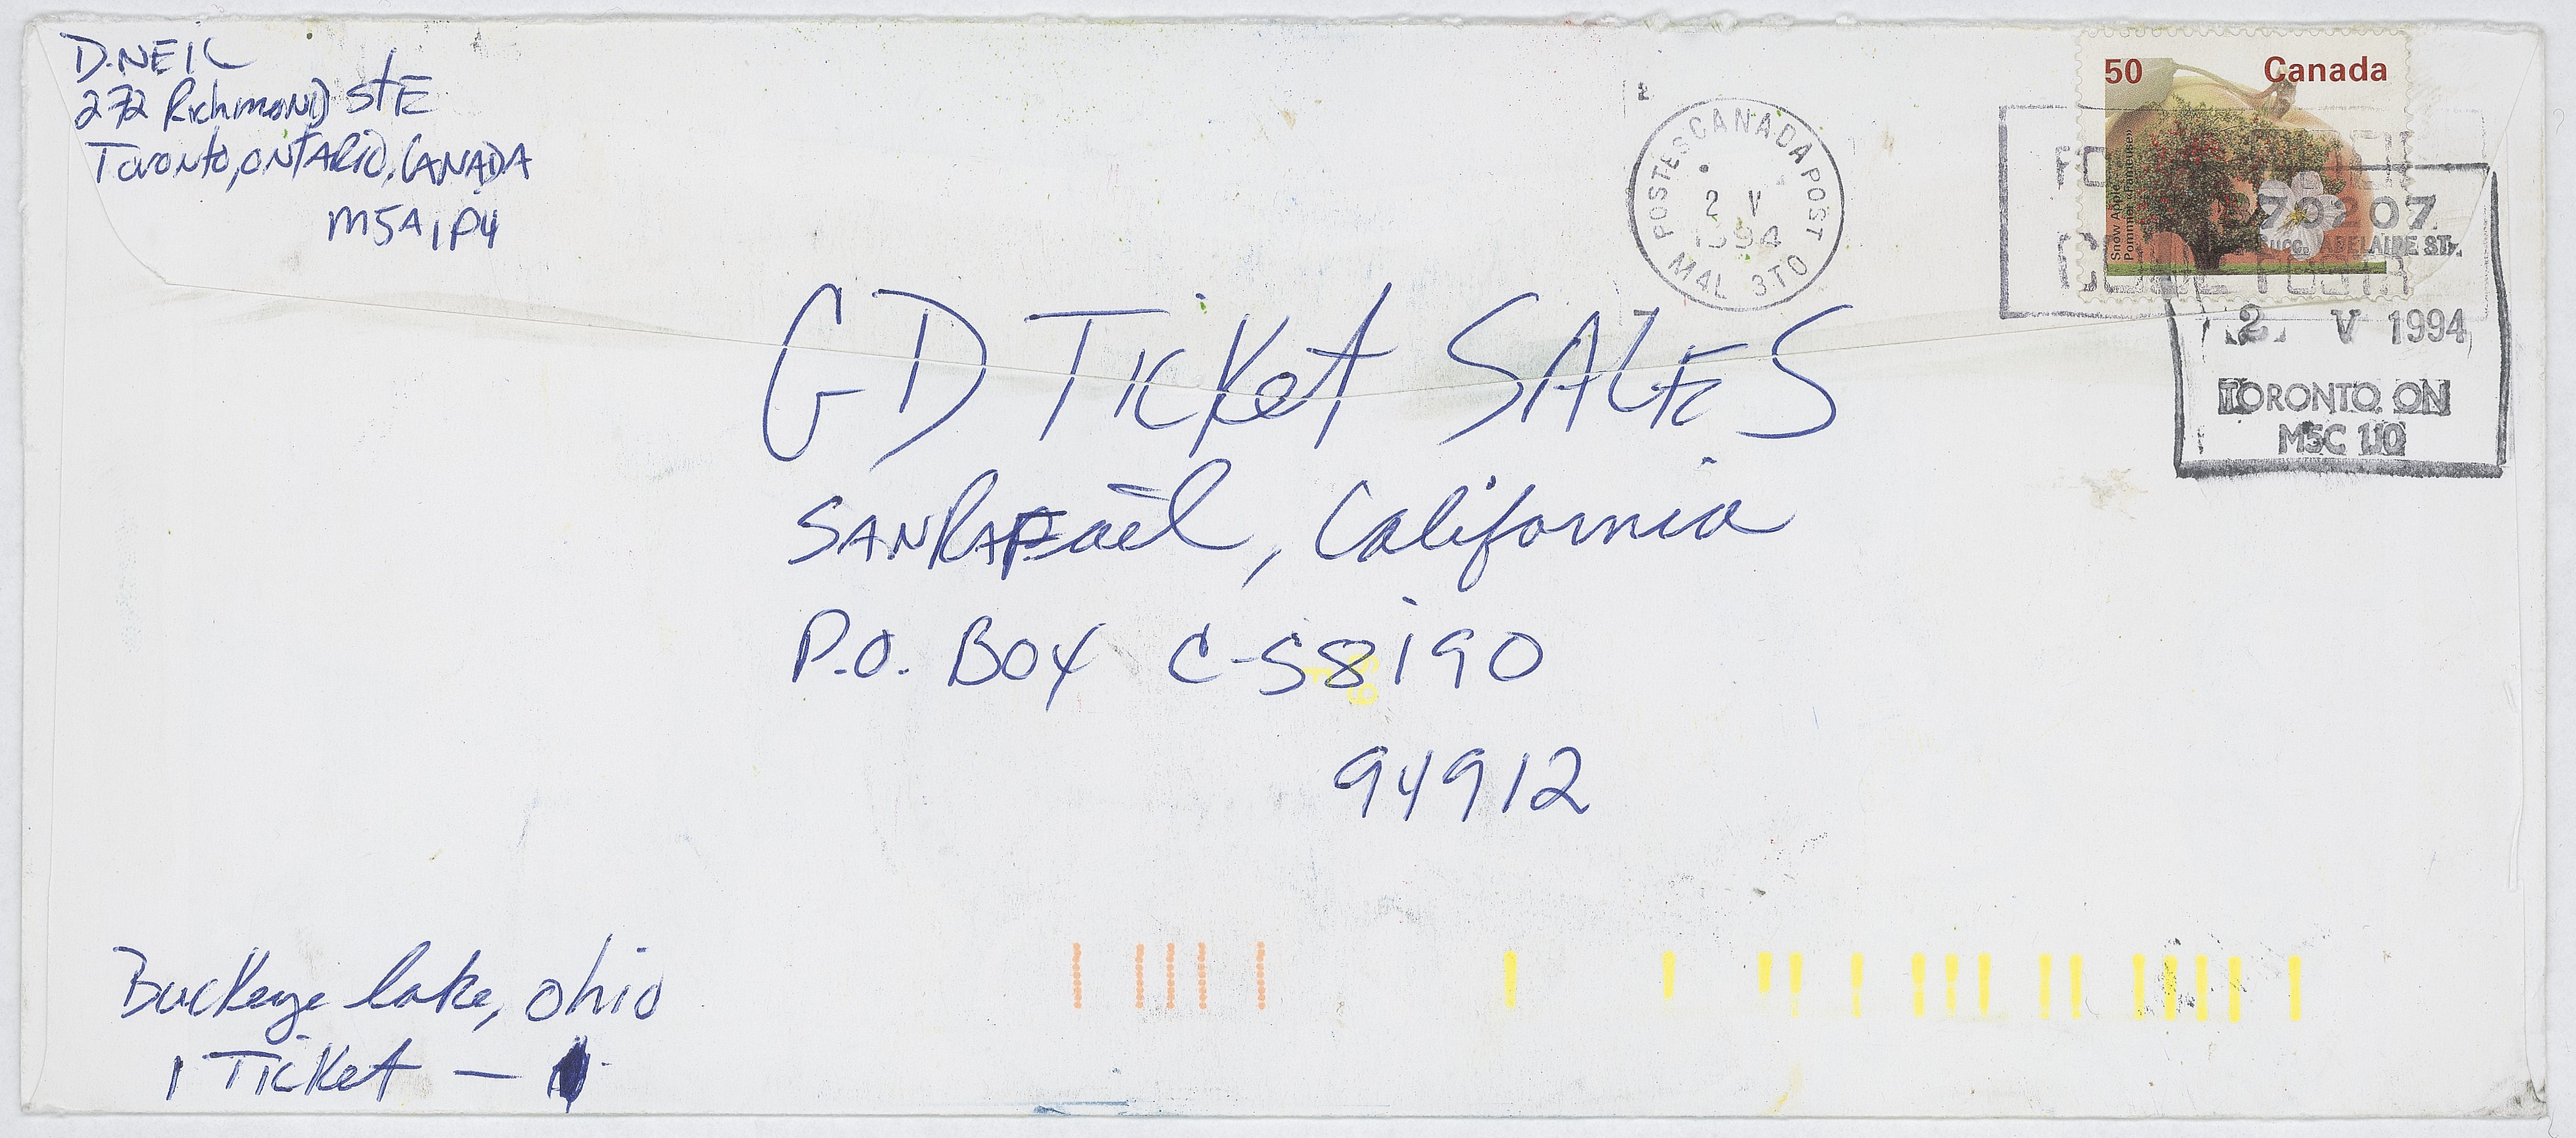 D. NEIL
272 Richmond St E
Toronto, ONTARIO, CANADA
M5A 1P4
POSTES CANADA POST
2 V
1994
MAL 3T0
50 Canada
Snow Apple
Pomme «Fameuse»
370207
Succ. ADELAIDE ST.
2 V 1994
TORONTO ON
M5C 1J0
GD Ticket SALES
SAN Rafael, California
P.O. Box C-S8190
94912
Buckeye lake, ohio
1 Ticket —